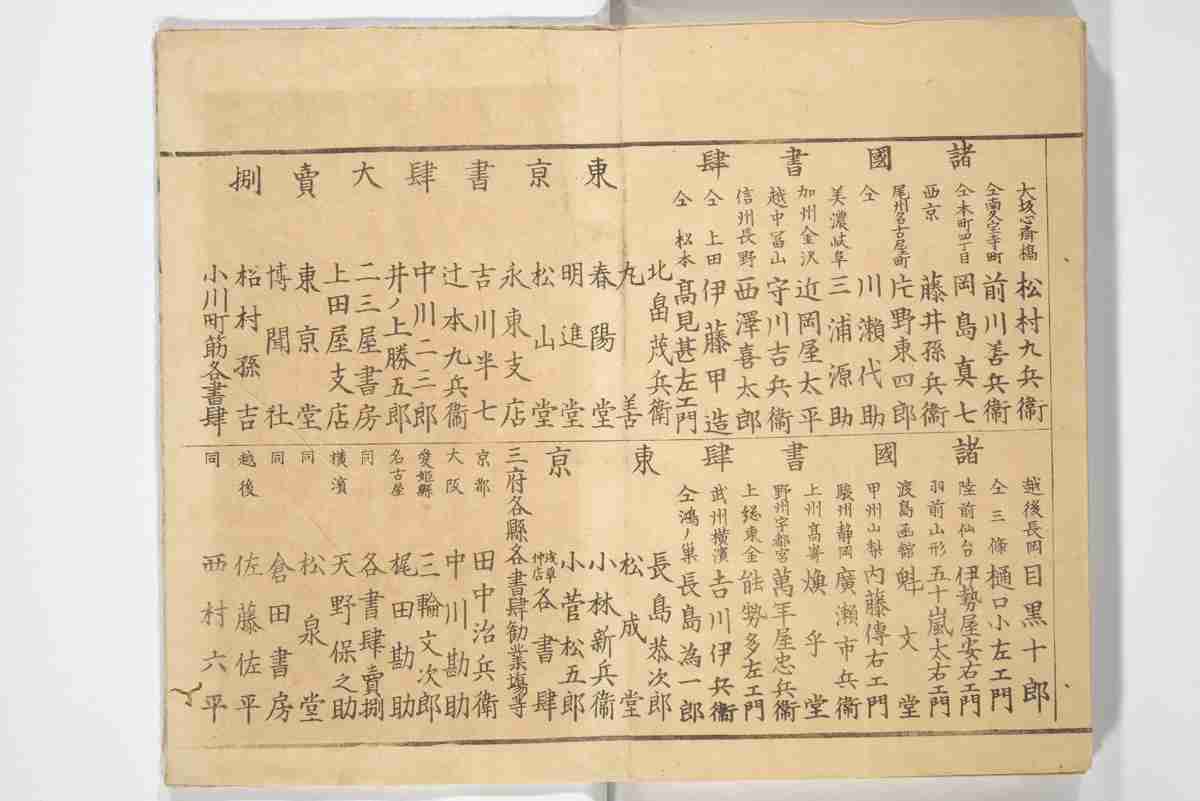 諸國書肆
大坂心斎橋 松村九兵衞
仝南久宝寺町 前川善兵衞
仝本町四丁目 岡島真七
西京 藤井孫兵衞
尾州名古屋町 片野東四郎
仝 川瀬代助
美濃岐阜 三浦源助
加州金沢 近岡屋太平
越中冨山 守川吉兵衞
信州長野 西澤喜太郎
仝上田 伊藤甲造
仝松本 髙見甚左エ門
東京書肆大賣捌
北畠茂兵衞
丸善
春陽堂
明進堂
松山堂
永東支店
吉川半七
辻本九兵衞
中川二三郎
井ノ上勝五郎
二三屋書房
上田屋支店
東京堂
博聞社
松村孫吉
小川町筋各書肆
諸國書肆
越後長岡 目黒十郎
仝三條 樋口小左エ門
陸前仙台 伊勢屋安右エ門
羽前山形 五十嵐太右エ門
渡島函館 魁文堂
甲州山梨 内藤傳右エ門
駿州静岡 廣瀬市兵衞
上州髙嵜 煥乎堂
野州宇都宮 萬年屋忠兵衞
上総東金 能勢多左エ門
武州横濱 吉川伊兵衞
仝鴻ノ巣 長島為一郎
東京
長島恭次郎
松成堂
小林新兵衞
小菅松五郎
浅草仲店 各書肆
三府各縣各書肆勧業塲等
京都 田中治兵衞
大阪 中川勘助
愛媛縣 三輪文次郎
名古屋 梶田勘助
同 各書肆賣捌
横濱 天野保之助
同 松泉堂
同 倉田書房
越後 佐藤佐平
同 西村六平